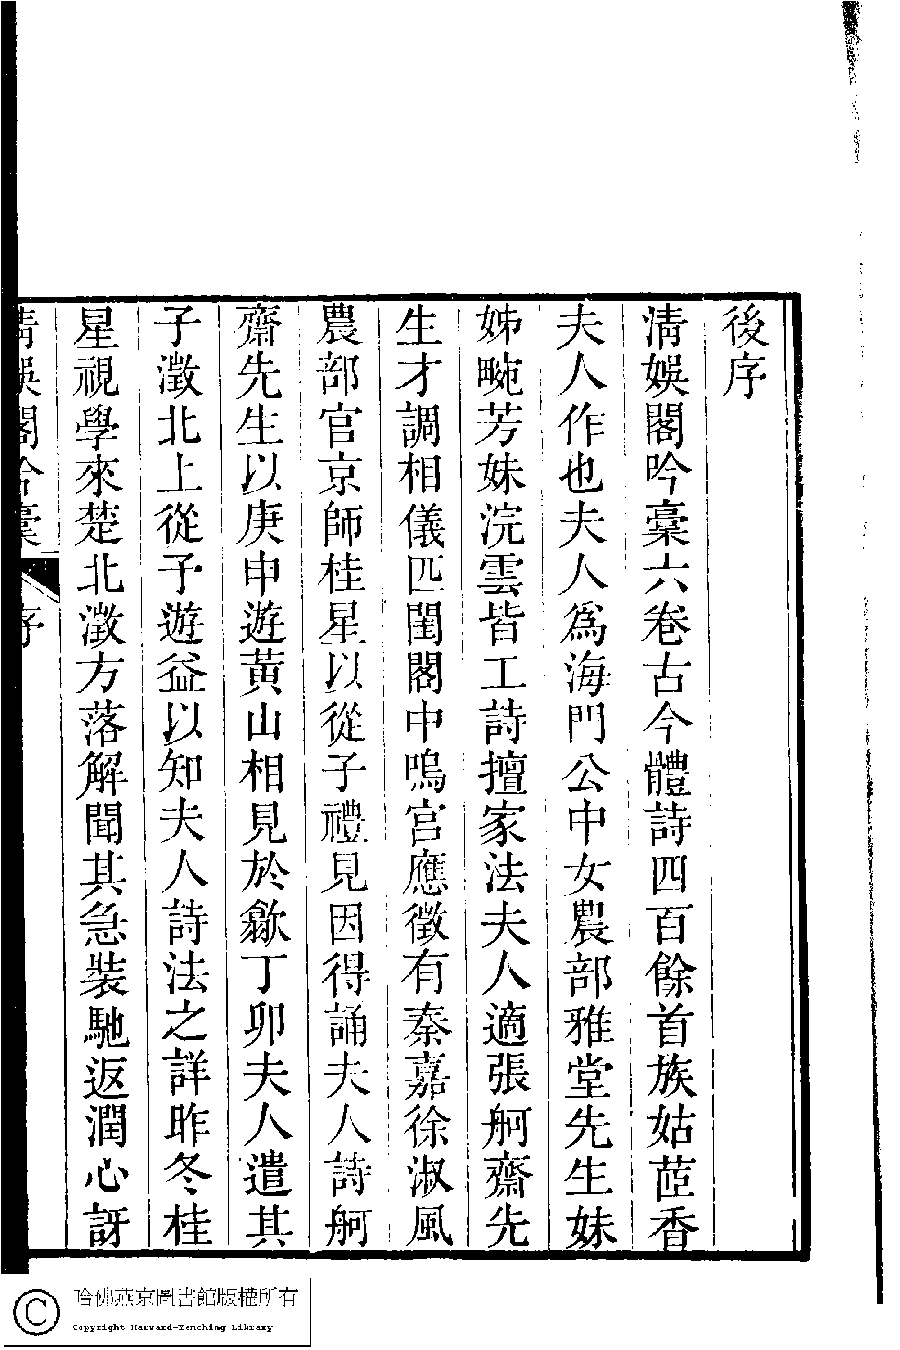 後序
清娛閣吟稾六卷古今體詩四百餘首族姑茝香
夫人作也夫人爲海門公中女農部雅堂先生妹
姊畹芳妹浣雲皆工詩擅家法夫人適張舸齋先
生才調相儀匹閨閣中鳴宮應徵有秦嘉徐淑風
農部官京師桂星以從子禮見因得誦夫人詩舸
齋先生以庚申遊黃山相見於歙丁卯夫人遣其
子澂北上從予遊益以知夫人詩法之詳昨冬桂
星視學來楚北澂方落解聞其急裝馳返潤心訝
清娛閣合稾 序
哈佛燕京圖書館版權所有
Copyright Harvard-Yenching Library